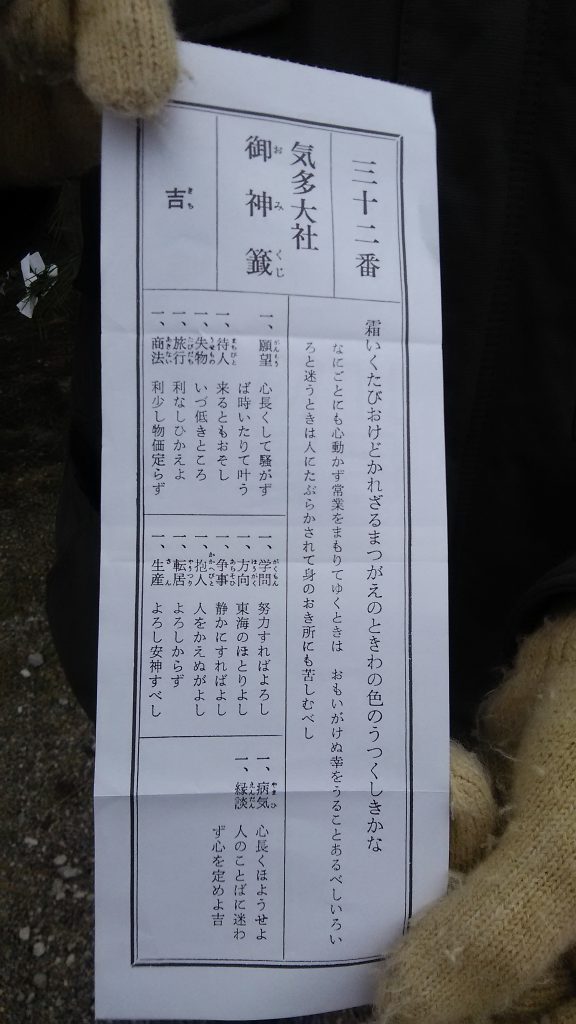 三十二番
気多大社
御神籤
おみくじ
吉
きち
霜いくたびおけどかれざるまつがえのときわの色のうつくしきかな
なにごとにも心動かず常業をまもりてゆくときは　おもいがけぬ幸をうることあるべしいろい
ろと迷うときは人にたぶらかされて身のおき所にも苦しむべし
一、願望　心長くして騒がず
がんもう
ば時いたりて叶う
一、待人　来るともおそし
まちびと
一、失物　いづ低きところ
うせもの
一、旅行　利なしひかえよ
たびだち
一、商法　利少し物価定らず
あきない
一、学問　努力すればよろし
がくもん
一、方向　東海のほとりよし
ほうがく
一、争事　静かにすればよし
あらそひ
一、抱人　人をかえぬがよし
かかへびと
一、転居　よろしからず
やうつり
一、生産　よろし安神すべし
さん
一、病気　心長くほようせよ
やまひ
一、縁談　人のことばに迷わ
えんだん
ず心を定めよ吉